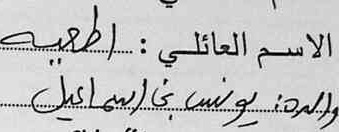 الاسم العائلي : اطعيه
والده: يونس بن اسماعيل